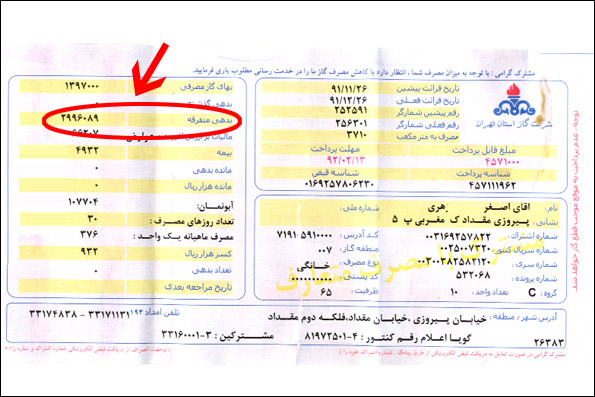 مشترک گرامی : با توجه به میزان مصرف شما ، انتظار دارد با کاهش مصرف گاز ما را در خدمت رسانی مطلوب یاری فرمایید.
شرکت گاز استان تهران
تاریخ قرائت پیشین ۹۱/۱۱/۲۶
تاریخ قرائت فعلی ۹۱/۱۲/۲۶
رقم پیشین شمارگر ۲۵۲۵۹۱
رقم فعلی شمارگر ۲۵۶۳۰۱
مصرف به متر مکعب ۳۷۱۰
مبلغ قابل پرداخت ۴۵۷۱۰۰۰
مهلت پرداخت ۹۲/۰۲/۱۳
شناسه پرداخت ۴۵۷۱۱۱۹۶۲
شناسه قبض ۰۱۶۹۲۵۷۸۰۶۲۳۰
بهای گاز مصرفی ۱۳۹۷۰۰۰
بدهی گذشته ۰
بدهی متفرقه ۲۹۹۶۰۸۹
بیمه ۴۹۳۲
مانده بدهی ۰
مانده هزار ریال ۰
آبونمان: ۱۰۷۷۰۴
تعداد روزهای مصرف : ۳۰
مصرف ماهیانه یک واحد : ۳۷۶
کسر هزار ریال ۹۳۲
تعداد بدهی ۰
تاریخ مراجعه بعدی
نام: اقای اصغر هری
شماره ملی:
نشانی: پیروزی مقداد ک مغربی پ ۵
شماره اشتراک: ۰۰۳۱۶۹۲۵۷۸۲۲
کد آدرس: ۷۱۹۱ ۵۹۱۰۰۰۰
شماره سریال کنتور: ۰۰۲۵۰۰۷۳۲۰
منطقه گاز: ۰۰۷
شماره سری: ۰۰۳۰۰۳۸۲۵۸۲۱۲۰
نوع مصرف: خانگی
شماره پرونده: ۵۳۲۰۶۸
کد پستی:
گروه C تعداد واحد: ۱۰ ظرفیت: ۶۵
آدرس شهر / منطقه : خیابان پیروزی ،خیابان مقداد،فلکه دوم مقداد
تلفن امداد ۱۹۴ ۳۳۱۷۱۱۳۱ - ۳۳۱۷۴۸۳۸
۲۶۳۸۳
گویا اعلام رقم کنتور : ۴-۸۱۹۷۲۵۰۱
مشترکین : ۳-۳۳۱۶۰۰۰۱
توجه: عدم پرداخت به موقع موجب قطع گاز خواهد شد.